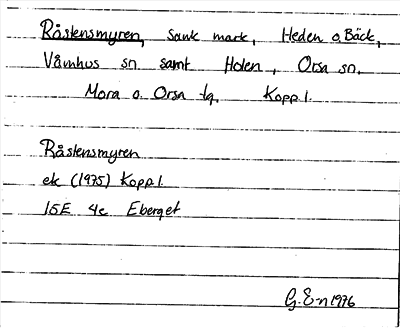 Råstensmyren, sank mark, Heden o. Bäck,
Våmhus sn samt Holen, Orsa sn,
Mora o. Orsa tg. Kopp. l.
Råstensmyren
ek (1975) Kopp. l.
15E 4c Eberget
G. E-n 1976